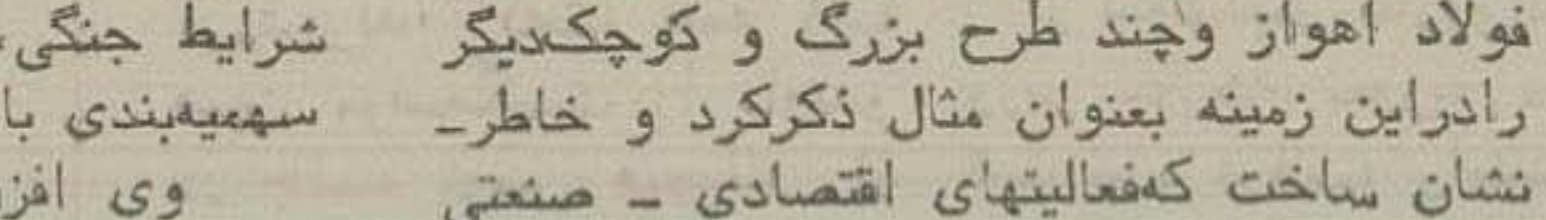 فولاد اهواز وچند طرح بزرگ و کوچک‌دیگر
رادراین زمینه بعنوان مثال ذکرکرد و خاطر‌ـ
نشان ساخت که‌فعالیتهای اقتصادی ـ صنعتی
شرایط جنگی،
سهمیه‌بندی با
وی افز